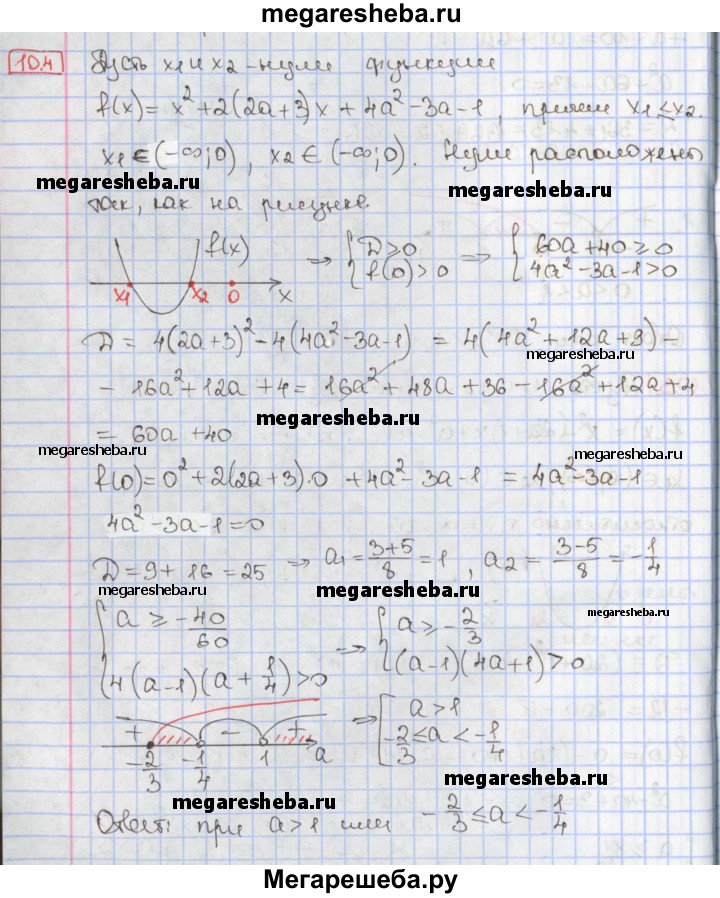 megaresheba.ru
10.4 Пусть x₁ и x₂ - нули функции
f(x) = x² + 2(2a+3)x + 4a² - 3a - 1, причем x₁ ≤ x₂.
x₁ ∈ (-∞; 0), x₂ ∈ (-∞; 0). Нули расположены
megaresheba.ru megaresheba.ru
так, как на рисунке.
f(x) x₁ x₂ 0 x ⇒ { D ≥ 0 f(0) > 0 ⇒ { 60a + 40 ≥ 0 4a² - 3a - 1 > 0
D = 4(2a+3)² - 4(4a² - 3a - 1) = 4(4a² + 12a + 9) -
megaresheba.ru
- 16a² + 12a + 4 = 16a² + 48a + 36 - 16a² + 12a + 4
megaresheba.ru
= 60a + 40
megaresheba.ru megaresheba.ru
f(0) = 0² + 2(2a+3)·0 + 4a² - 3a - 1 = 4a² - 3a - 1
4a² - 3a - 1 = 0
D = 9 + 16 = 25 ⇒ a₁ = (3+5)/8 = 1, a₂ = (3-5)/8 = -1/4
megaresheba.ru megaresheba.ru
{ a ≥ -40/60 4(a-1)(a + 1/4) > 0 ⇒ { a ≥ -2/3 (a-1)(4a+1) > 0
+ - + -2/3 -1/4 1 a ⇒ [ a > 1 -2/3 ≤ a < -1/4
megaresheba.ru
megaresheba.ru
Ответ: при a > 1 или -2/3 ≤ a < -1/4
megaresheba.ru
Мегарешеба.ру